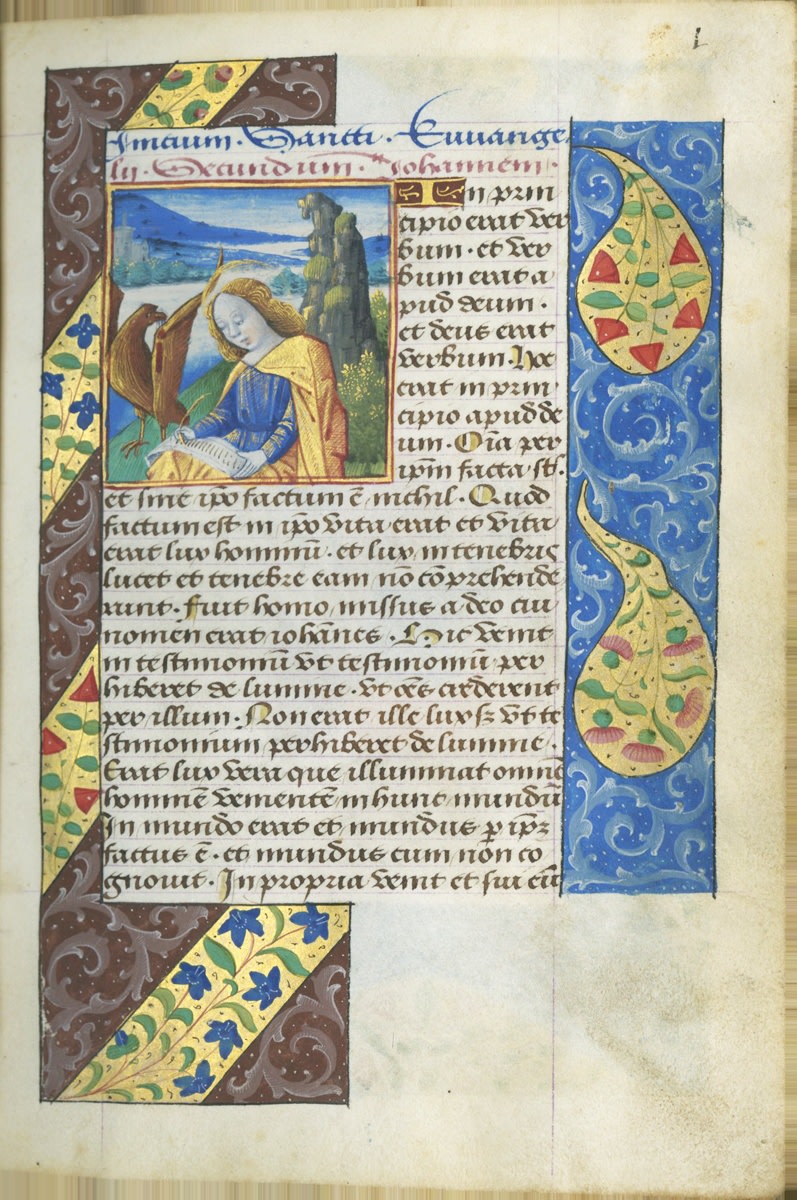 1
Inicium · Sancti · Euuange
lii · Secundum · Johannem ·
In prin
cipio erat ver
bum · et ver
bum erat a
pud deum ·
et deus erat
verbum · Hoc
erat in prin
cipio apud de
um · Oīa per
ipm̄ facta st̄ ·
et sine ipō factum ē nichil · Quod
factum est in ipō vita erat et vita
erat lux hominū · et lux in tenebris
lucet et tenebre eam nō cōprehende
runt · fuit homo missus a deo cui
nomen erat iohānes · Hic venit
in testimoniū vt testimoniū per
hiberet de lumine · vt oēs crederent
per illum · Non erat ille lux sꝫ vt te
stimonium perhiberet de lumine ·
Erat lux vera que illuminat omnē
hominē venientē in hunc mundū
In mundo erat et mundus ꝑ ipꝫ
factus ē · et mundus eum non co
gnouit · In propria venit et sui eū